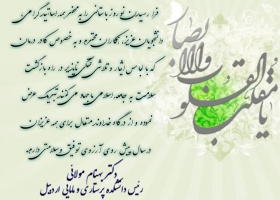 فرا رسیدن نوروز باستانی را به محضر همه اساتید گرامی،
دانشجویان عزیز، همکاران محترم و به خصوص کادر درمان
که با لباس ایثار و تلاشی خستگی ناپذیر در راه بازگشت
سلامت به جامعه اسلامی ما جهاد می کنند تبریک عرض
نموده و از درگاه خداوند متعال برای همه عزیزان
در سال پیش روی آرزوی توفیق و سلامتی دارم.
دکتر بهنام مولائی
رئیس دانشکده پرستاری و مامایی اردبیل
یا مقلب القلوب والابصار